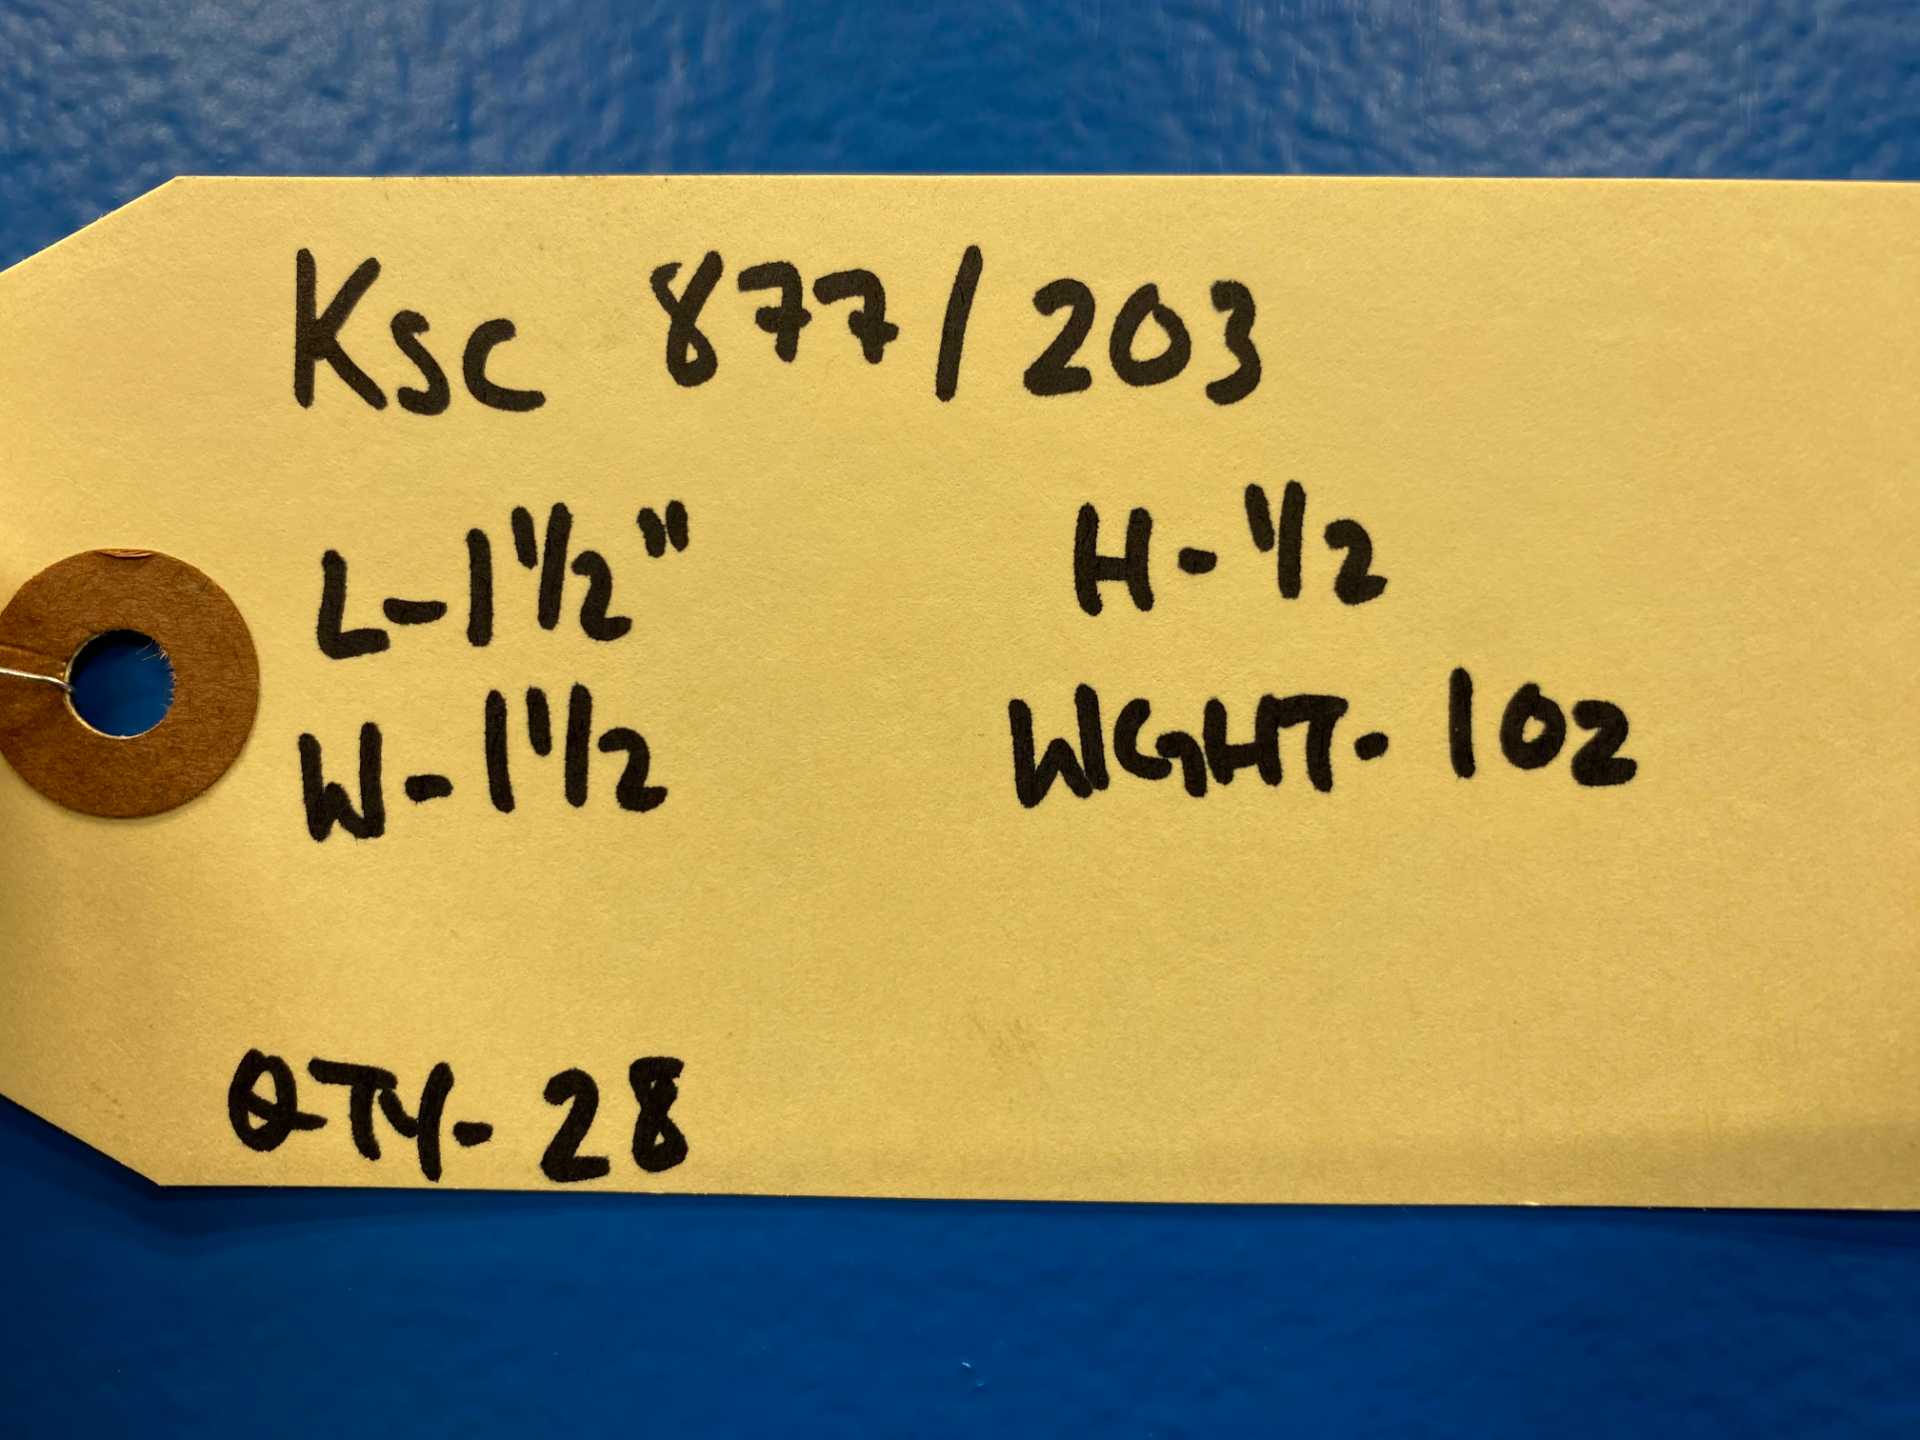 Ksc 877/203
L-1 1/2" H-1/2
W-1 1/2 WGHT-1 oz
QTY-28